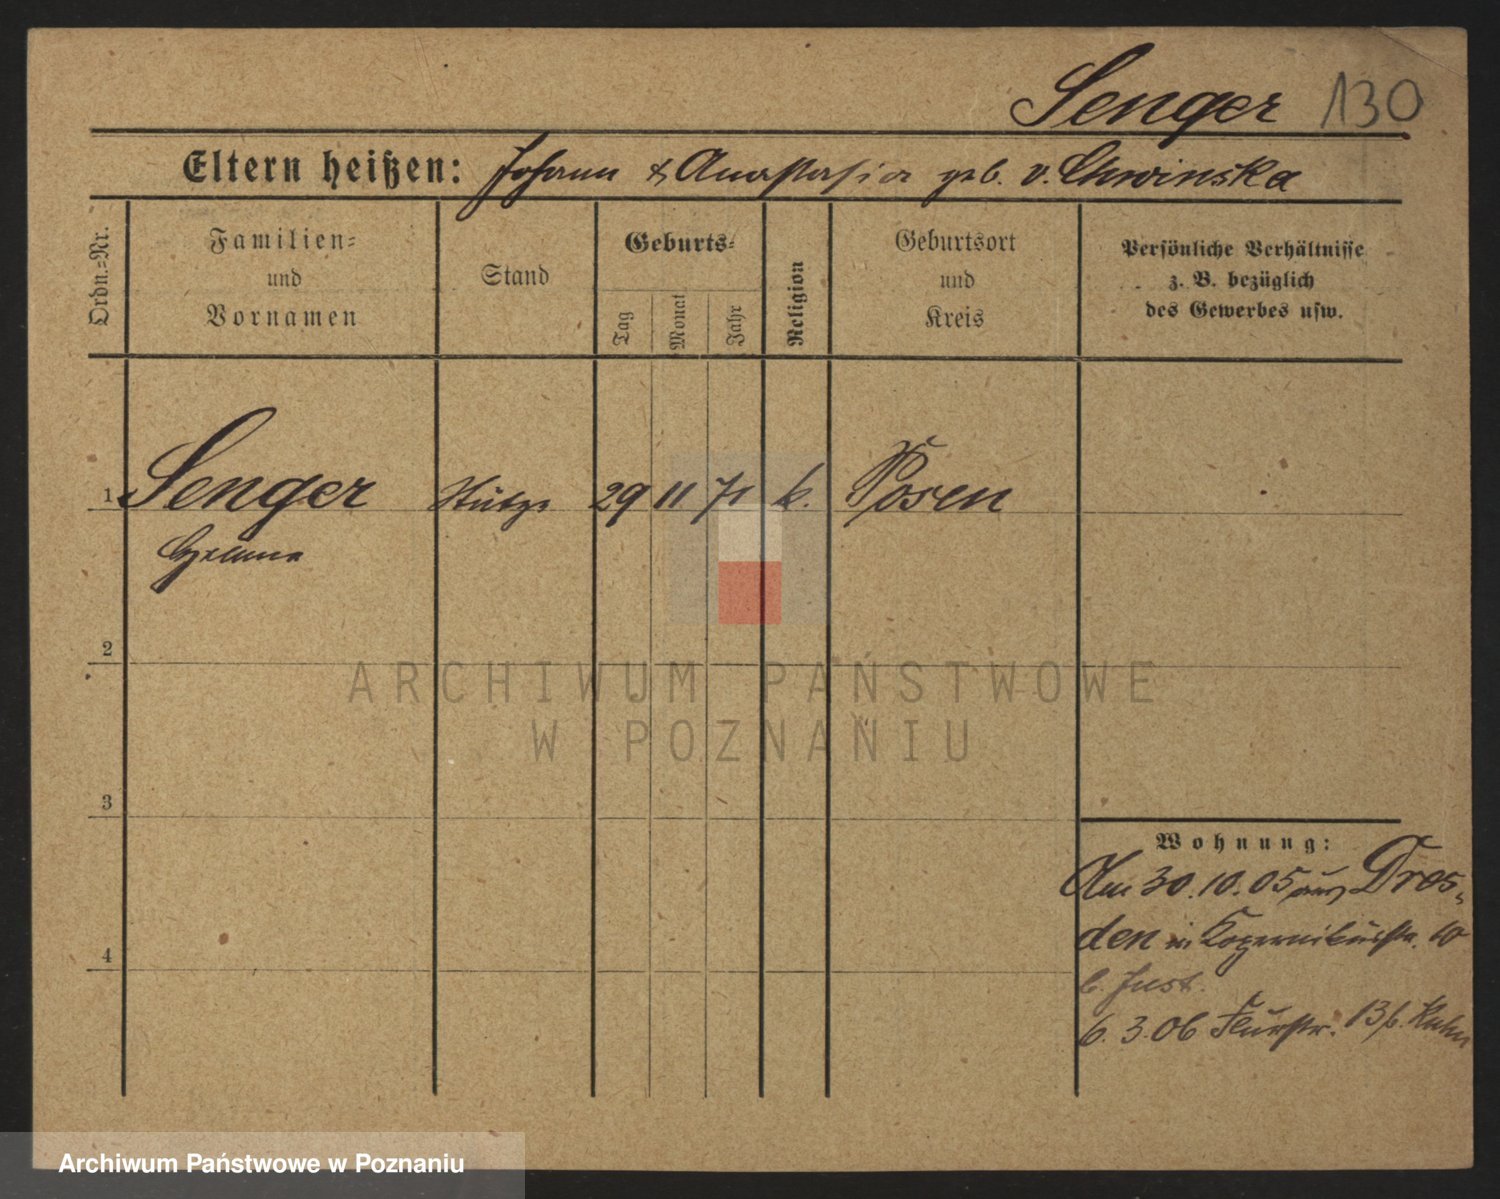 Senger 130
Eltern heißen: Johann & Anastasia geb. v. Chwinska
Ordn.-Nr.
Familien-
und
Vornamen
Stand
Geburts-
Tag
Monat
Jahr
Religion
Geburtsort
und
Kreis
Persönliche Verhältnisse
z. B. bezüglich
des Gewerbes usw.
1 Senger Stütze 29 11 71 k. Posen
2
3
4
Wohnung:
Am 30.10.05 aus Dres-
den in Kopernikusstr. 10
b. Just.
6.3.06 Flurstr. 13 b. Kuhn
ARCHIWUM PAŃSTWOWE
W POZNANIU
Archiwum Państwowe w Poznaniu